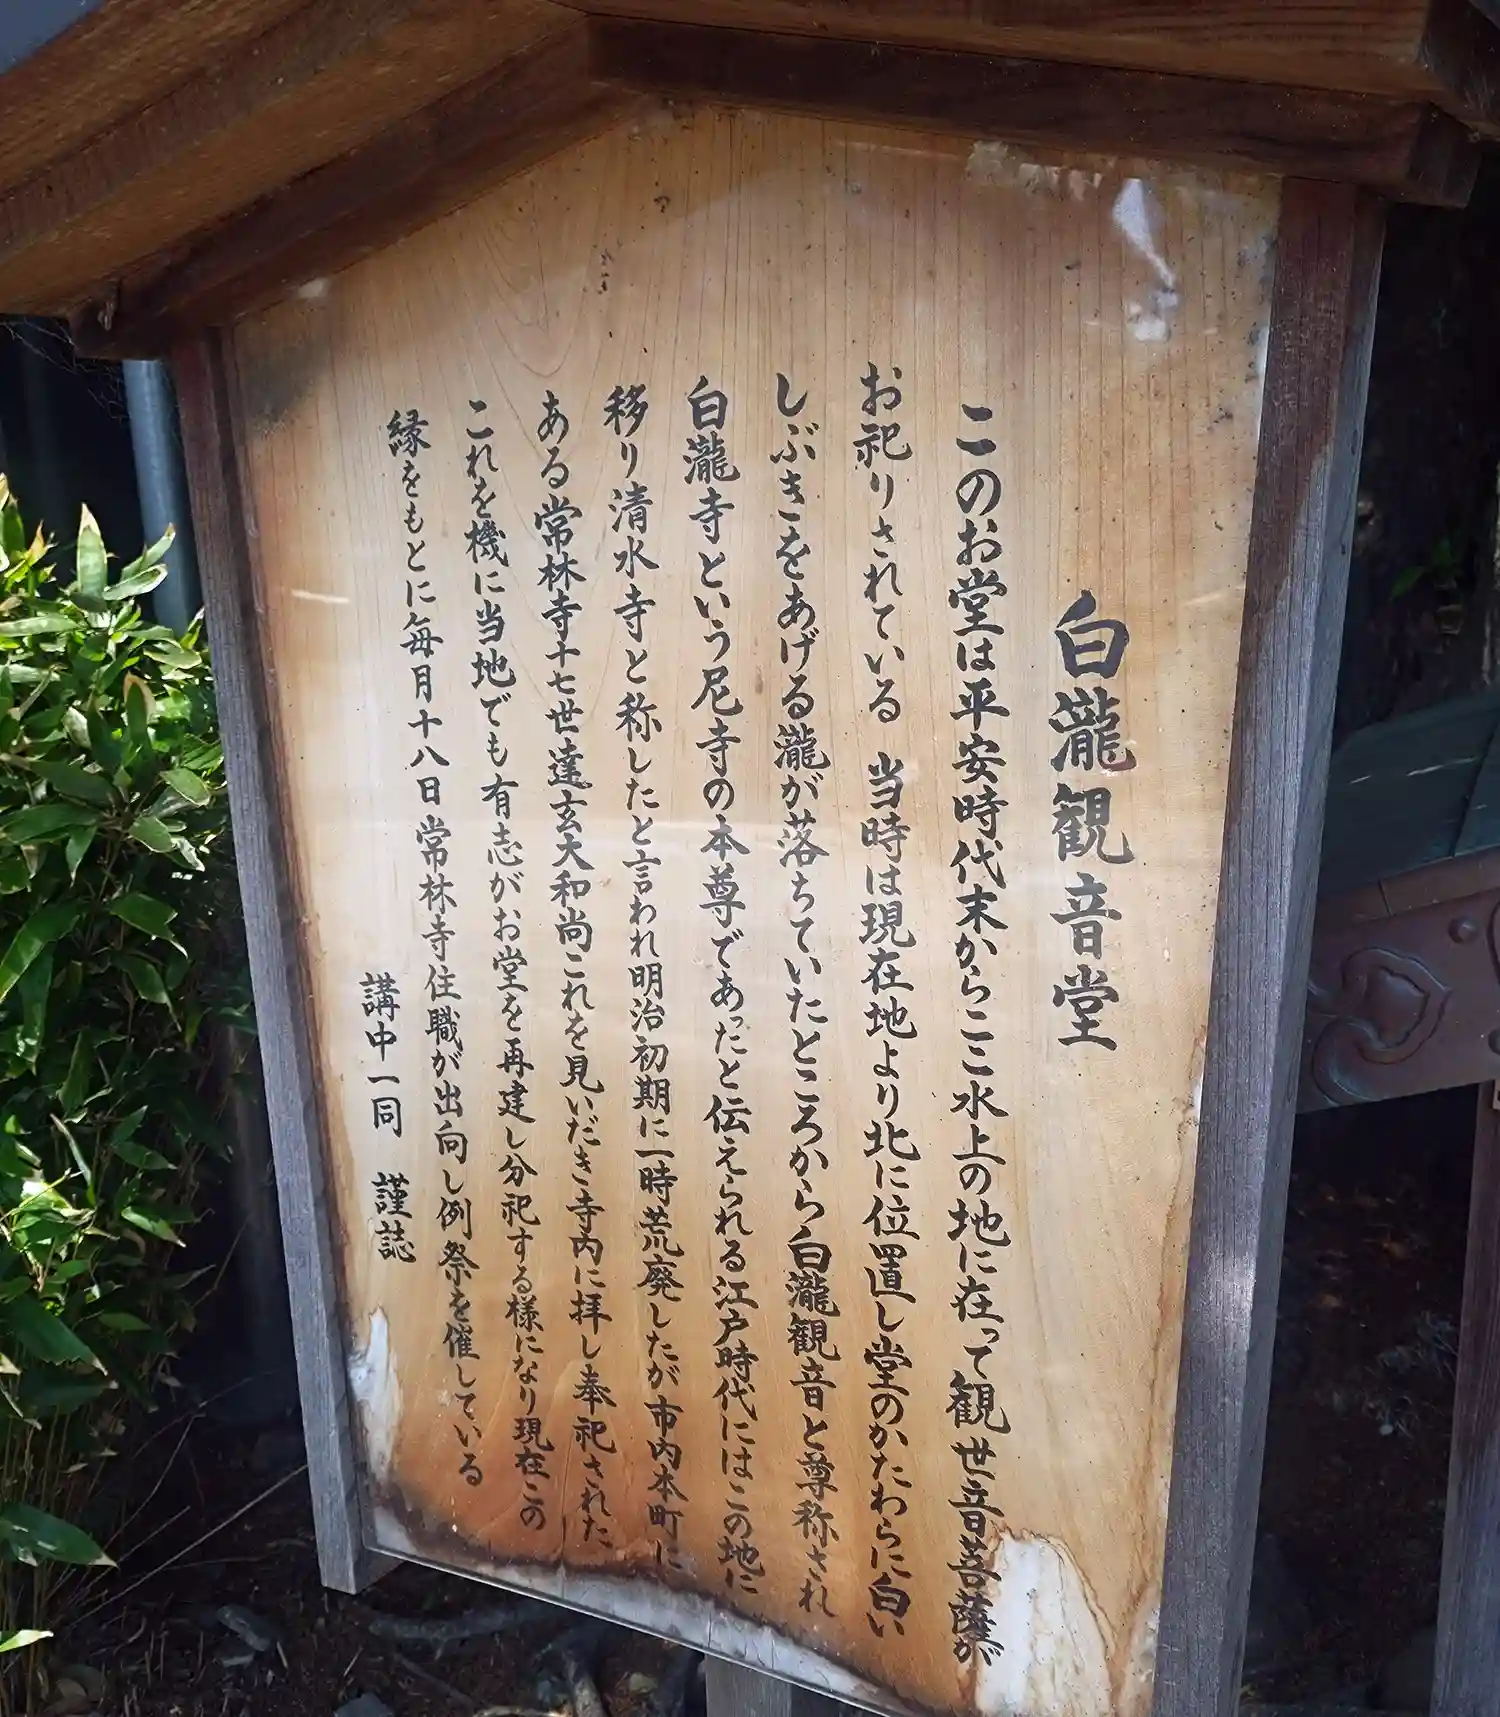 白瀧観音堂
このお堂は平安時代末からここ水上の地に在って観世音菩薩が
お祀りされている 当時は現在地より北に位置し堂のかたわらに白い
しぶきをあげる瀧が落ちていたところから白瀧観音と尊称され
白瀧寺という尼寺の本尊であったと伝えられる江戸時代にはこの地に
移り清水寺と称したと言われ明治初期に一時荒廃したが市内本町に
ある常林寺十七世達玄大和尚これを見いだき寺内に拝し奉祀された
これを機に当地でも有志がお堂を再建し分祀する様になり現在この
縁をもとに毎月十八日常林寺住職が出向し例祭を催している
講中一同 謹誌